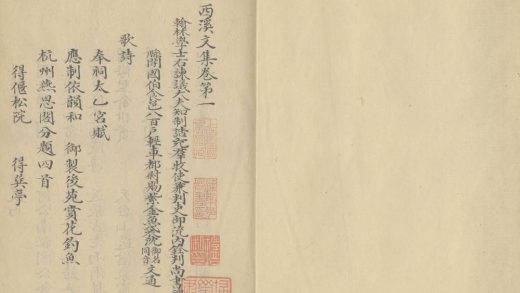 西溪文集卷第一
翰林學士右諫議大夫知制誥充羣牧使兼判吏部流內銓判尚書
縣開國伯食邑八百戶輕車都尉賜紫金魚袋沈御名同音文通
歌詩
奉祠太乙宮賦
應制依韻和 御製後苑賞花釣魚
杭州燕思閣分題四首
得偃松院 得巽亭